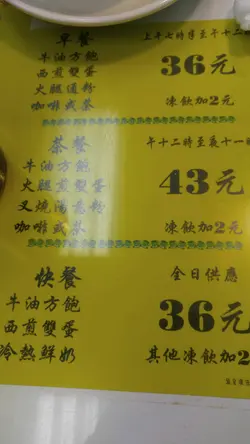 早餐 上午七時半至上午十二
牛油方飽
西煎雙蛋
火腿通粉
咖啡或茶
36元
凍飲加2元
茶餐 上午十二時至夜十一
牛油方飽
火腿煎雙蛋
叉燒湯意粉
咖啡或茶
43元
凍飲加2元
快餐 全日供應
牛油方飽
西煎雙蛋
冷熱鮮奶
36元
其他凍飲加2